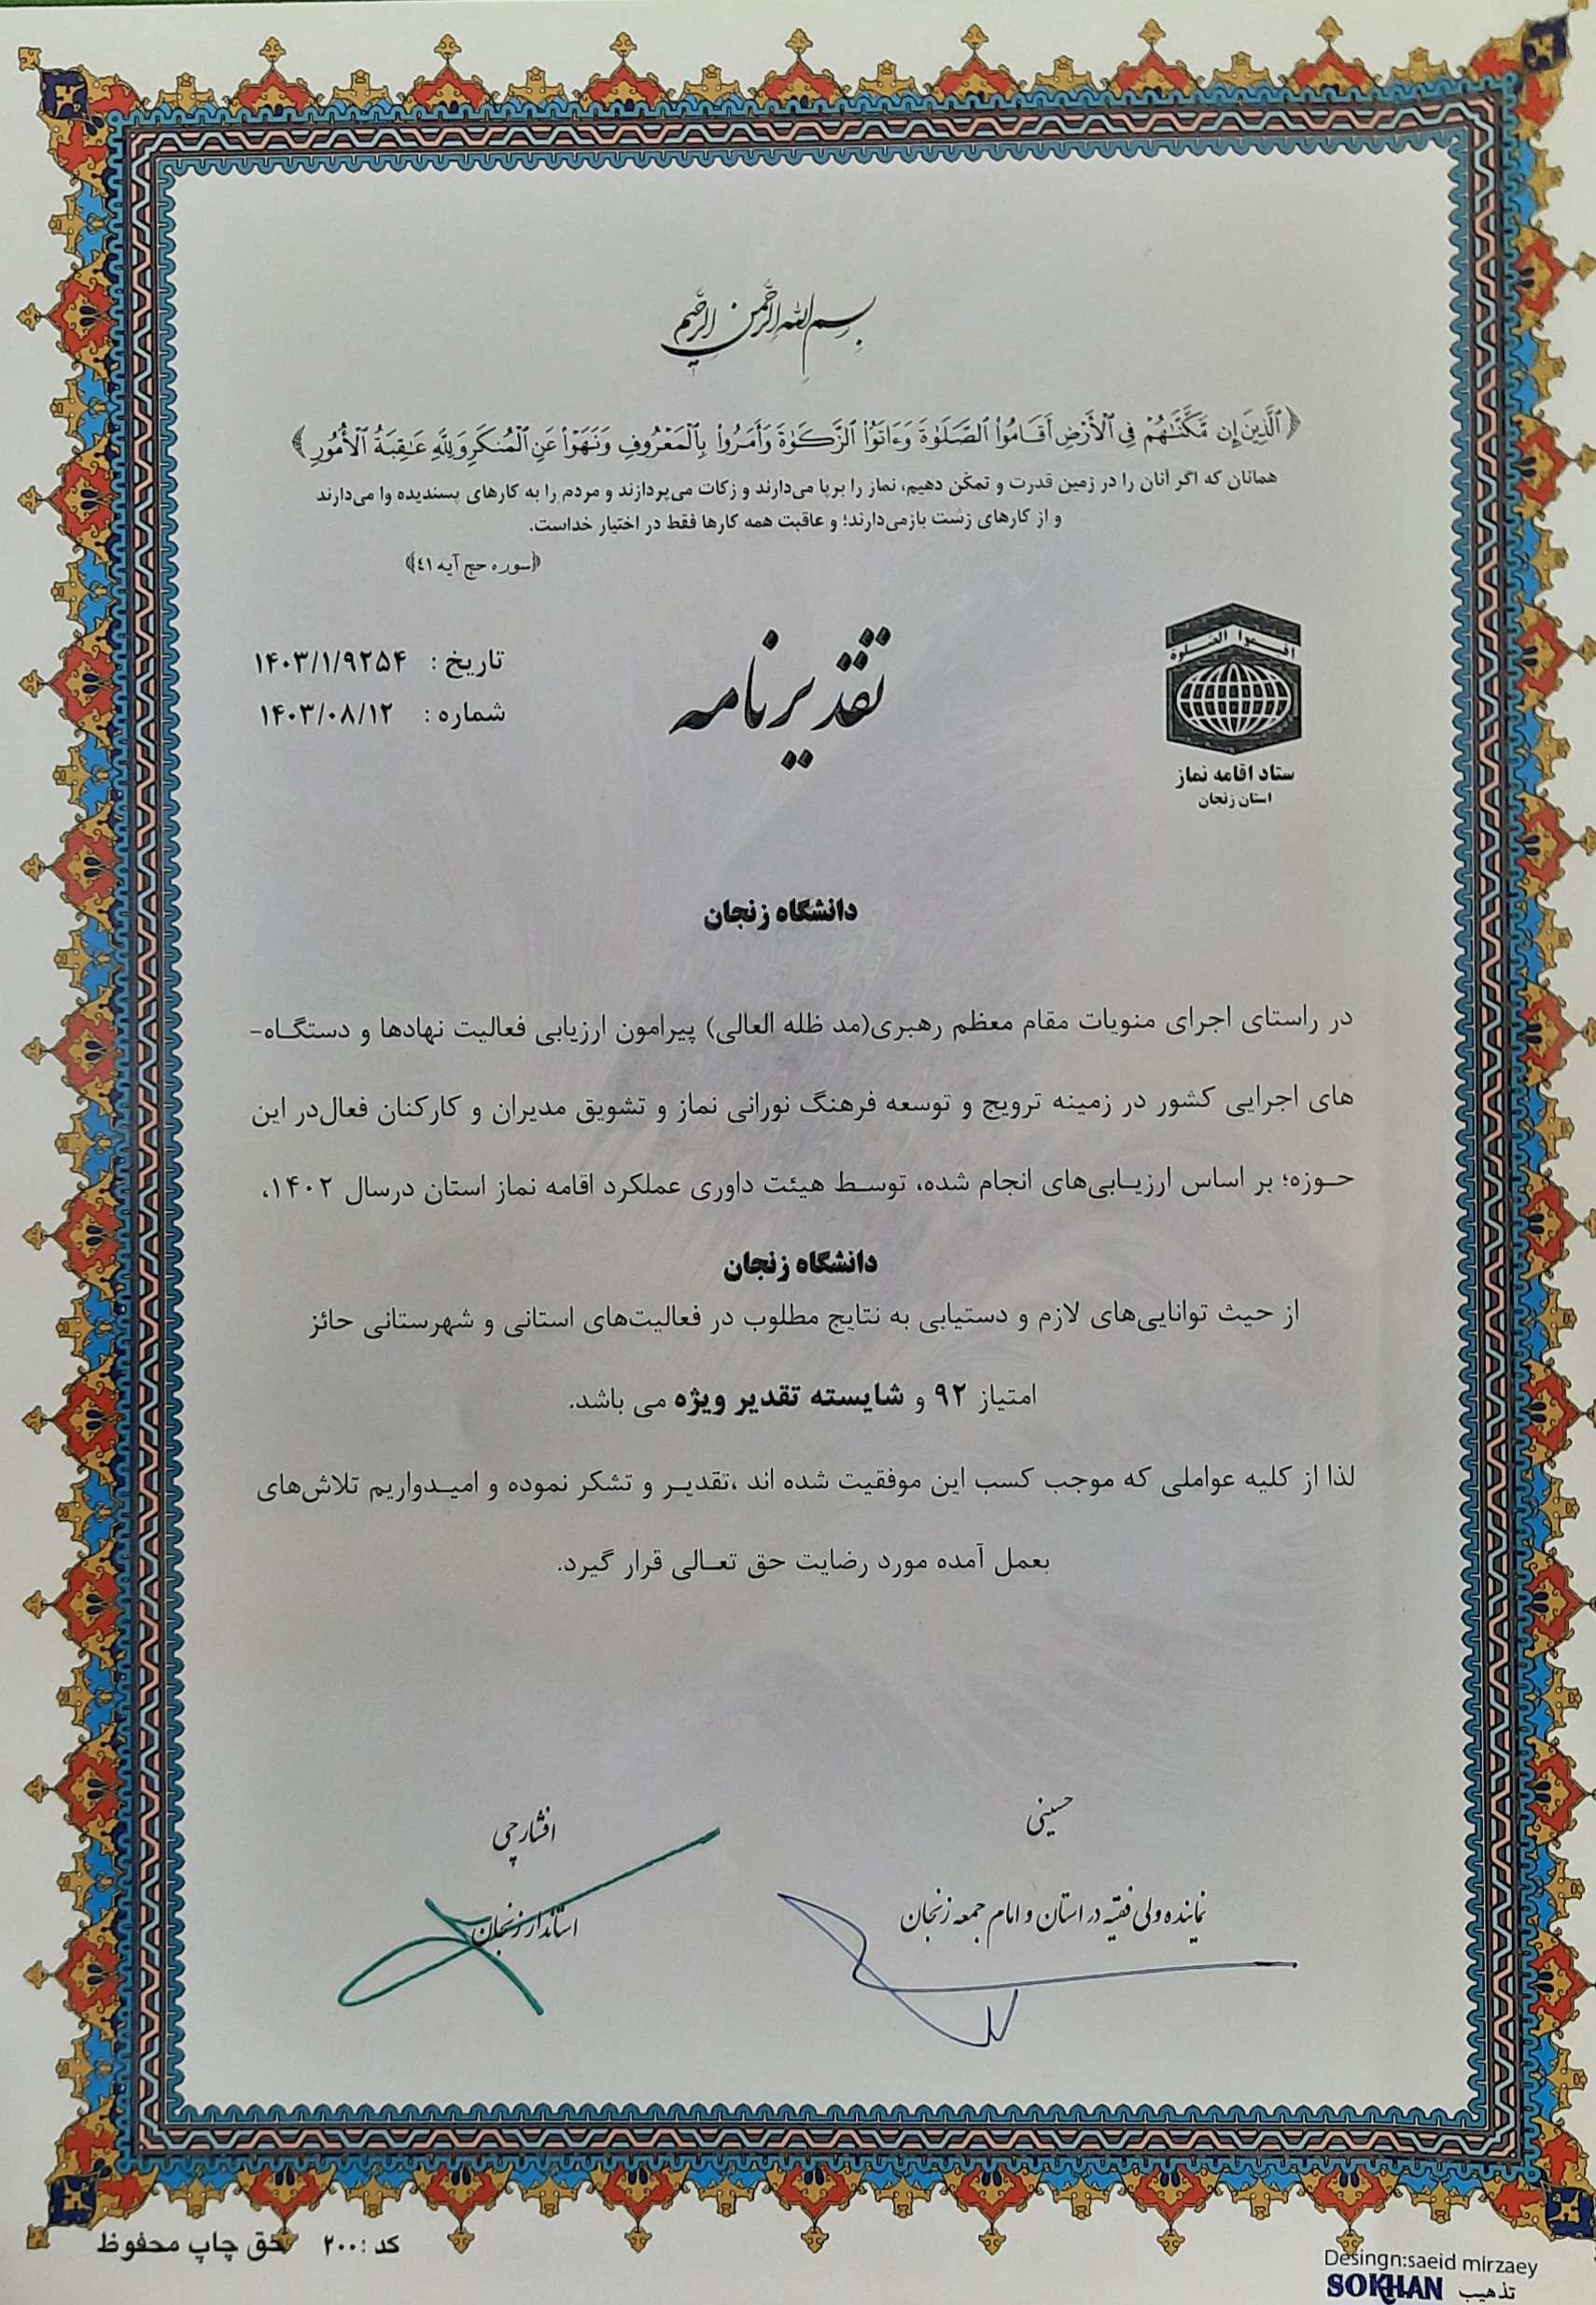 بسم الله الرحمن الرحیم
﴿ٱلَّذِينَ إِن مَّكَّنَّٰهُمْ فِي ٱلْأَرْضِ أَقَامُواْ ٱلصَّلَوٰةَ وَءَاتَوُاْ ٱلزَّكَوٰةَ وَأَمَرُواْ بِٱلْمَعْرُوفِ وَنَهَوْاْ عَنِ ٱلْمُنكَرِ وَلِلَّهِ عَٰقِبَةُ ٱلْأُمُورِ﴾
همانان که اگر آنان را در زمین قدرت و تمکّن دهیم، نماز را برپا می‌دارند و زکات می‌پردازند و مردم را به کارهای پسندیده وا می‌دارند
و از کارهای زشت بازمی‌دارند؛ و عاقبت همه کارها فقط در اختیار خداست.
﴿سوره حج آیه ٤١﴾
اقیموا الصلوة
ستاد اقامه نماز
استان زنجان
تقدیرنامه
تاریخ : ۱۴۰۳/۱/۹۲۵۴
شماره : ۱۴۰۳/۰۸/۱۲
دانشگاه زنجان
در راستای اجرای منویات مقام معظم رهبری(مد ظله العالی) پیرامون ارزیابی فعالیت نهادها و دستگـاه-
های اجرایی کشور در زمینه ترویج و توسعه فرهنگ نورانی نماز و تشویق مدیران و کارکنان فعال‌در این
حـوزه؛ بر اساس ارزیـابی‌های انجام شده، توسـط هیئت داوری عملکرد اقامه نماز استان درسال ۱۴۰۲،
دانشگاه زنجان
از حیث توانایی‌های لازم و دستیابی به نتایج مطلوب در فعالیت‌های استانی و شهرستانی حائز
امتیاز ۹۲ و شایسته تقدیر ویژه می باشد.
لذا از کلیه عواملی که موجب کسب این موفقیت شده اند ،تقدیـر و تشکر نموده و امیـدواریم تلاش‌های
بعمل آمده مورد رضایت حق تعـالی قرار گیرد.
حسینی
نماینده ولی فقیه در استان و امام جمعه زنجان
افشارچی
استاندار زنجان
کد :۲۰۰ حق چاپ محفوظ
Desingn:saeid mirzaey
تذهیب SOKHAN